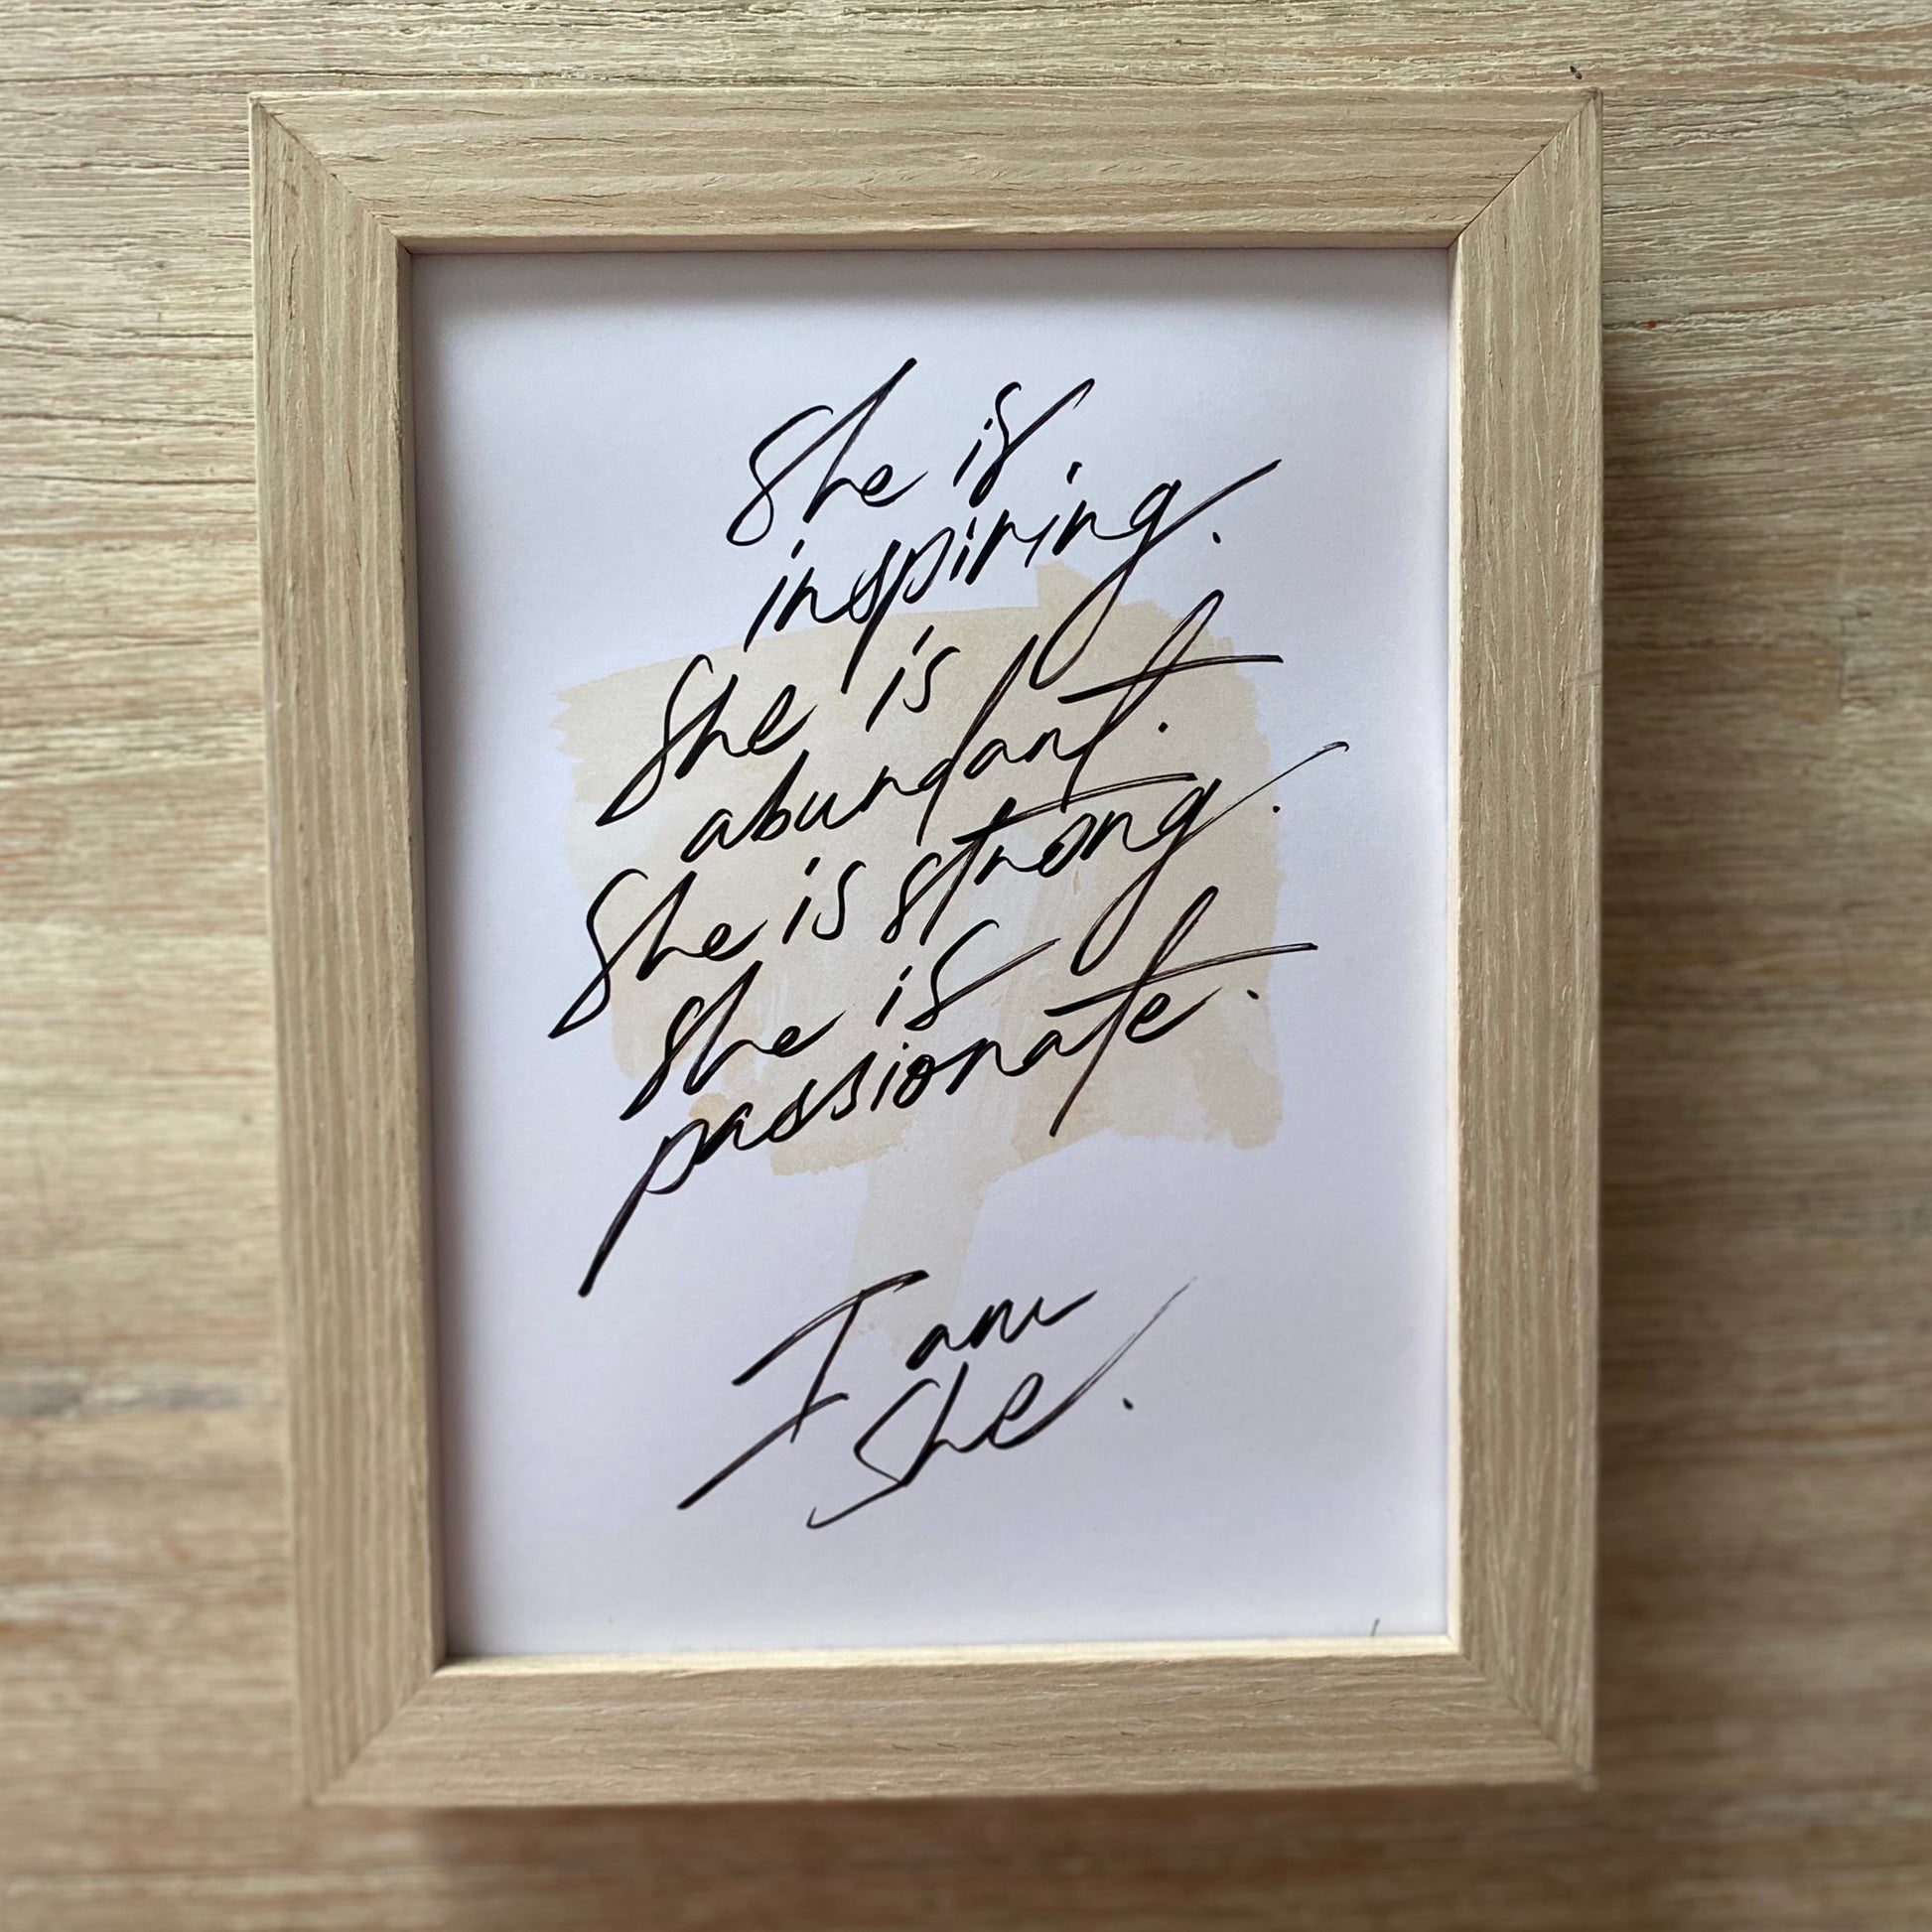 She is
inspiring.
She is
abundant.
She is strong.
She is
passionate.
I am
She.